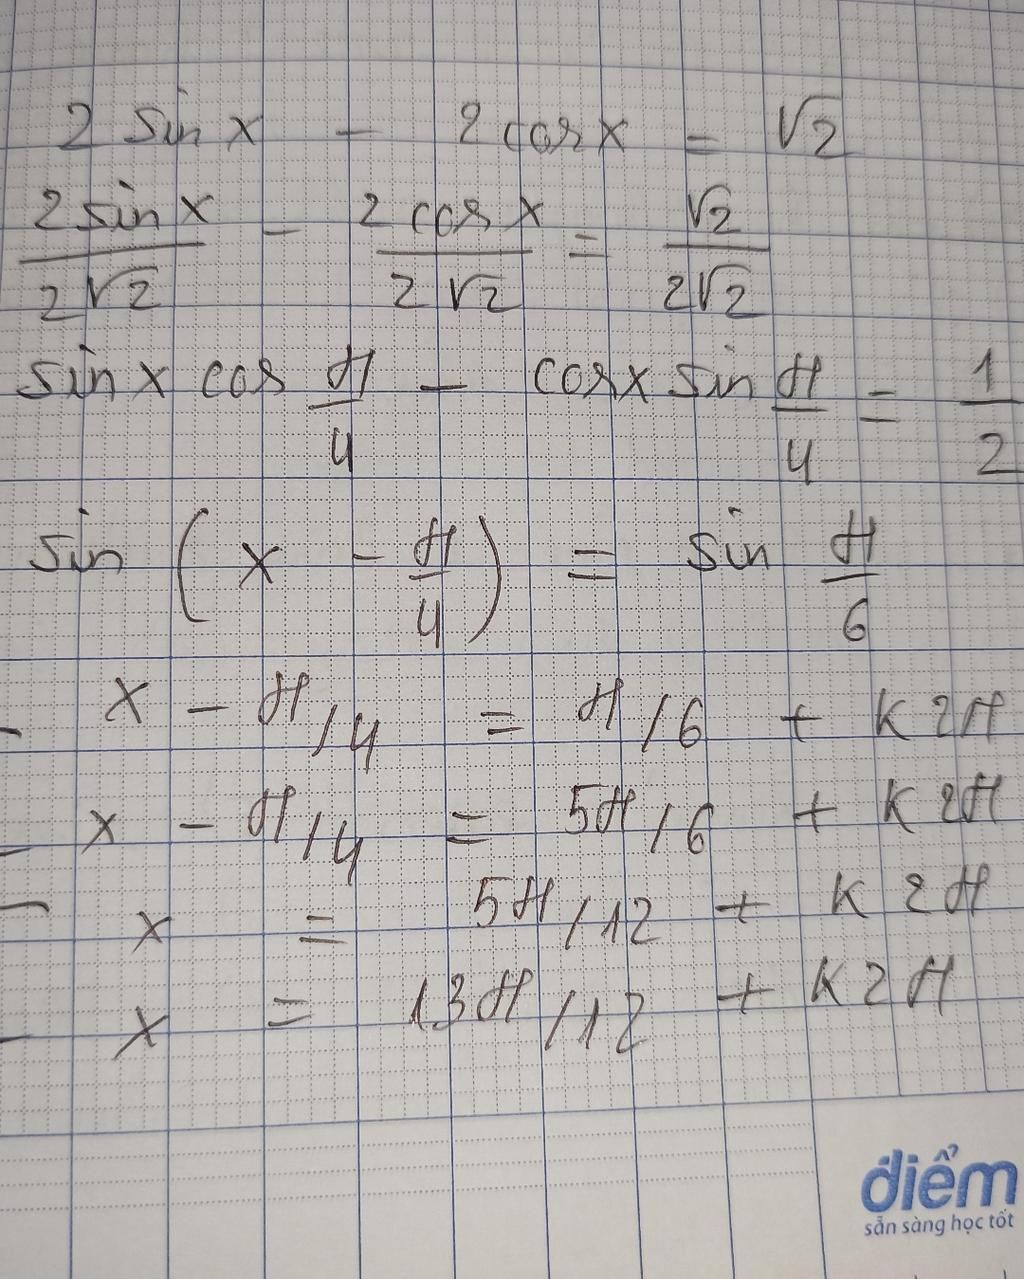 2 sin x - 2 cos x = √2
2 sin x / 2√2 - 2 cos x / 2√2 = √2 / 2√2
sin x cos π/4 - cos x sin π/4 = 1/2
sin (x - π/4) = sin π/6
- x - π/4 = π/6 + k2π
- x - π/4 = 5π/6 + k2π
- x = 5π/12 + k2π
- x = 13π/12 + k2π
điểm
sẵn sàng học tốt